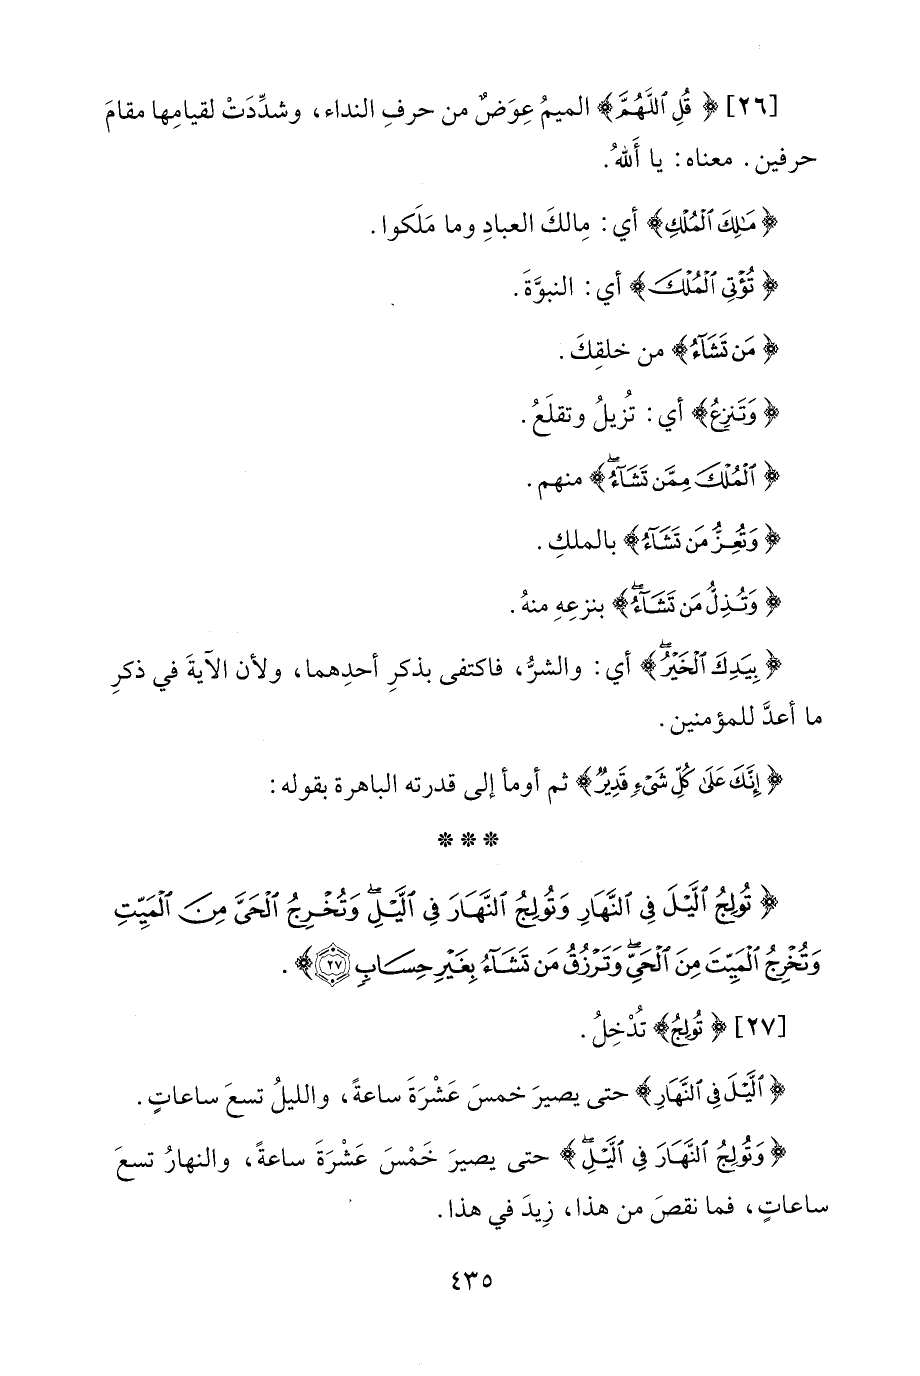 [٢٦] ﴿ قُلِ ٱللَّهُمَّ﴾ الميمُ عِوَضٌ من حرفِ النداء، وشدِّدَتْ لقيامِها مقامَ
حرفين. معناه: يا أَللهُ.
﴿ مَـٰلِكَ ٱلۡمُلۡكِ﴾ أي: مالكَ العبادِ وما مَلَكوا.
﴿ تُؤۡتِى ٱلۡمُلۡكَ﴾ أي: النبوَّةَ.
﴿ مَن تَشَآءُ﴾ من خلقِكَ.
﴿ وَتَنزِعُ﴾ أي: تُزيلُ وتقلَعُ.
﴿ ٱلۡمُلۡكَ مِمَّن تَشَآءُۖ﴾ منهم.
﴿ وَتُعِزُّ مَن تَشَآءُ﴾ بالملكِ.
﴿ وَتُذِلُّ مَن تَشَآءُۖ﴾ بنزعِهِ منهُ.
﴿ بِيَدِكَ ٱلۡخَيۡرُۖ﴾ أي: والشرُّ، فاكتفى بذكرِ أحدِهما، ولأن الآيةَ في ذكرِ
ما أعدَّ للمؤمنين.
﴿ إِنَّكَ عَلَىٰ كُلِّ شَىۡءٖ قَدِيرٞ﴾ ثم أومأ إلى قدرته الباهرة بقوله:
* * *
﴿ تُولِجُ ٱلَّيۡلَ فِى ٱلنَّهَارِ وَتُولِجُ ٱلنَّهَارَ فِى ٱلَّيۡلِۖ وَتُخۡرِجُ ٱلۡحَىَّ مِنَ ٱلۡمَيِّتِ
وَتُخۡرِجُ ٱلۡمَيِّتَ مِنَ ٱلۡحَىِّۖ وَتَرۡزُقُ مَن تَشَآءُ بِغَيۡرِ حِسَابٖ ٢٧﴾.
[٢٧] ﴿ تُولِجُ﴾ تُدْخِلُ.
﴿ ٱلَّيۡلَ فِى ٱلنَّهَارِ﴾ حتى يصيرَ خمسَ عَشْرَةَ ساعةً، والليلُ تسعَ ساعاتٍ.
﴿ وَتُولِجُ ٱلنَّهَارَ فِى ٱلَّيۡلِۖ﴾ حتى يصيرَ خَمْسَ عَشْرَةَ ساعةً، والنهارُ تسعَ
ساعاتٍ، فما نقصَ من هذا، زِيدَ في هذا.
٤٣٥